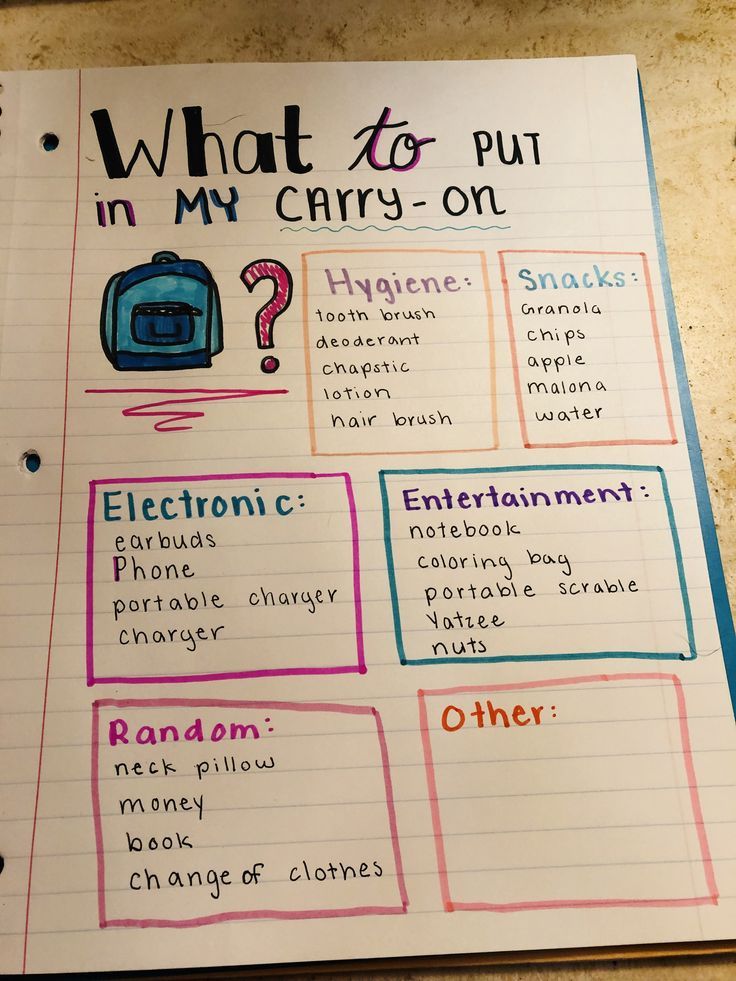 What to PUT
in MY CArry-on
?
Hygiene:
tooth brush
deoderant
chapstic
lotion
hair brush
Snacks:
Granola
chips
apple
malona
water
Electronic:
earbuds
Phone
portable charger
charger
Entertainment:
notebook
coloring bag
portable scrable
Yatzee
nuts
Random:
neck pillow
money
book
change of clothes
Other: